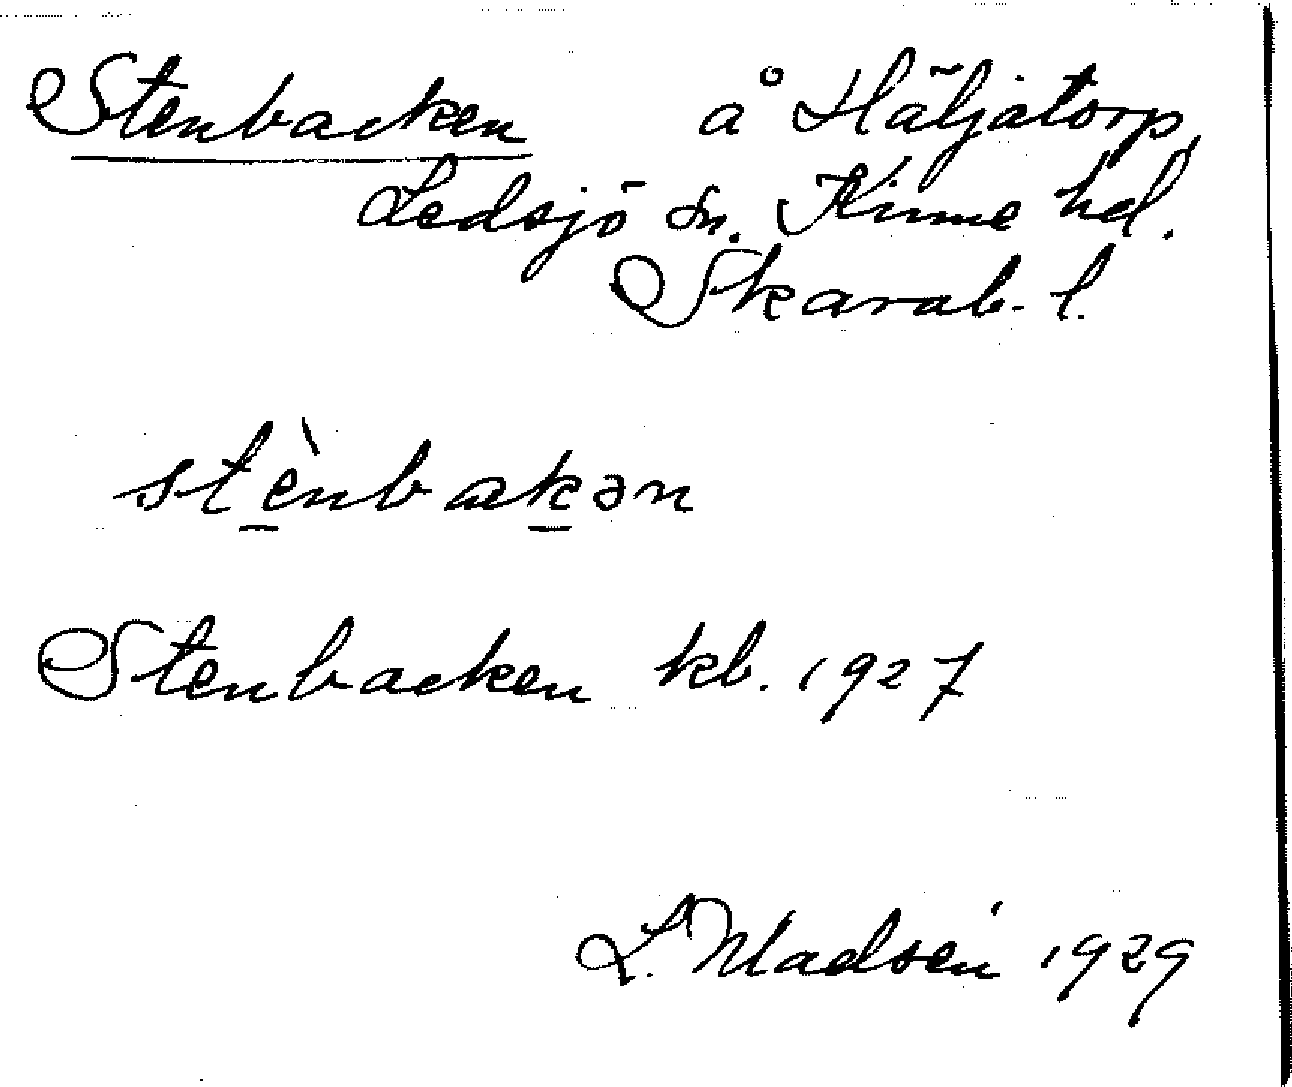 Stenbacken å Häljatorp,
Ledsjö sn. Kinne hd.
Skarab. l.
stènbakən
Stenbacken kb. 1927
L. Madsén 1929